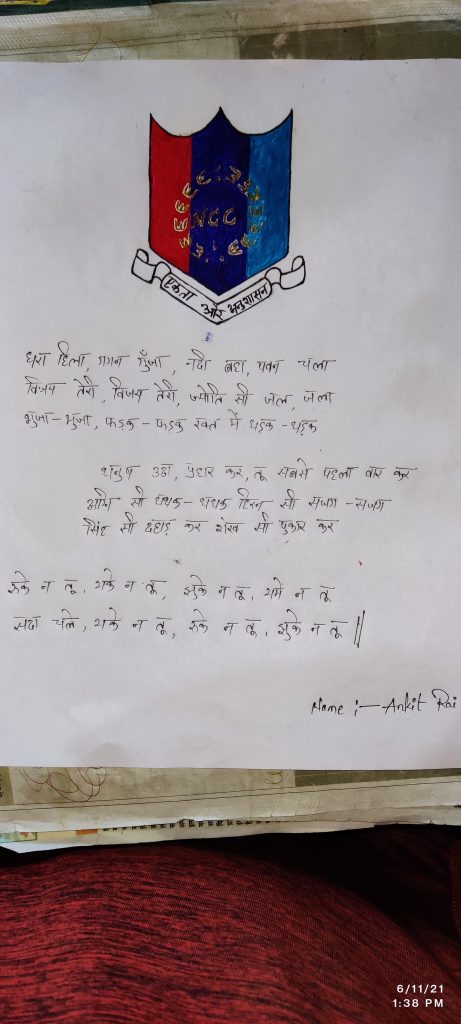 NCC
एकता और अनुशासन
धरा हिला, गगन गूँजा, नदी बहा, पवन चला
विजय तेरी, विजय तेरी, ज्योति सी जल, जला
भुजा-भुजा, फड़क-फड़क रक्त में धड़क-धड़क
धनुष उठा, प्रहार कर, तू सबसे पहला वार कर
अग्नि सी धधक-धधक हिरन सी सजग-सजग
सिंह सी दहाड़ कर शंख सी पुकार कर
रुके न तू, थके न तू, झुके न तू, थमे न तू
सदा चले, थके न तू, रुके न तू, झुके न तू ||
Name :- Ankit Rai
6/11/21
1:38 PM